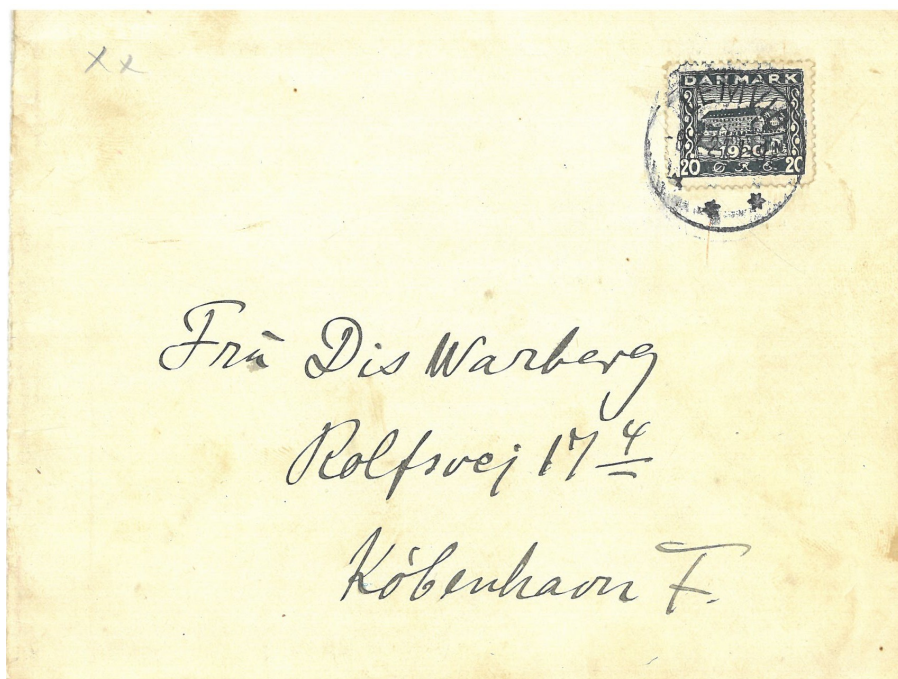 xx
DANMARK
LEMVIG
1920
20 ØRE 20
Frŭ Dis Warberg
Rolfsvej 17 4
København F.